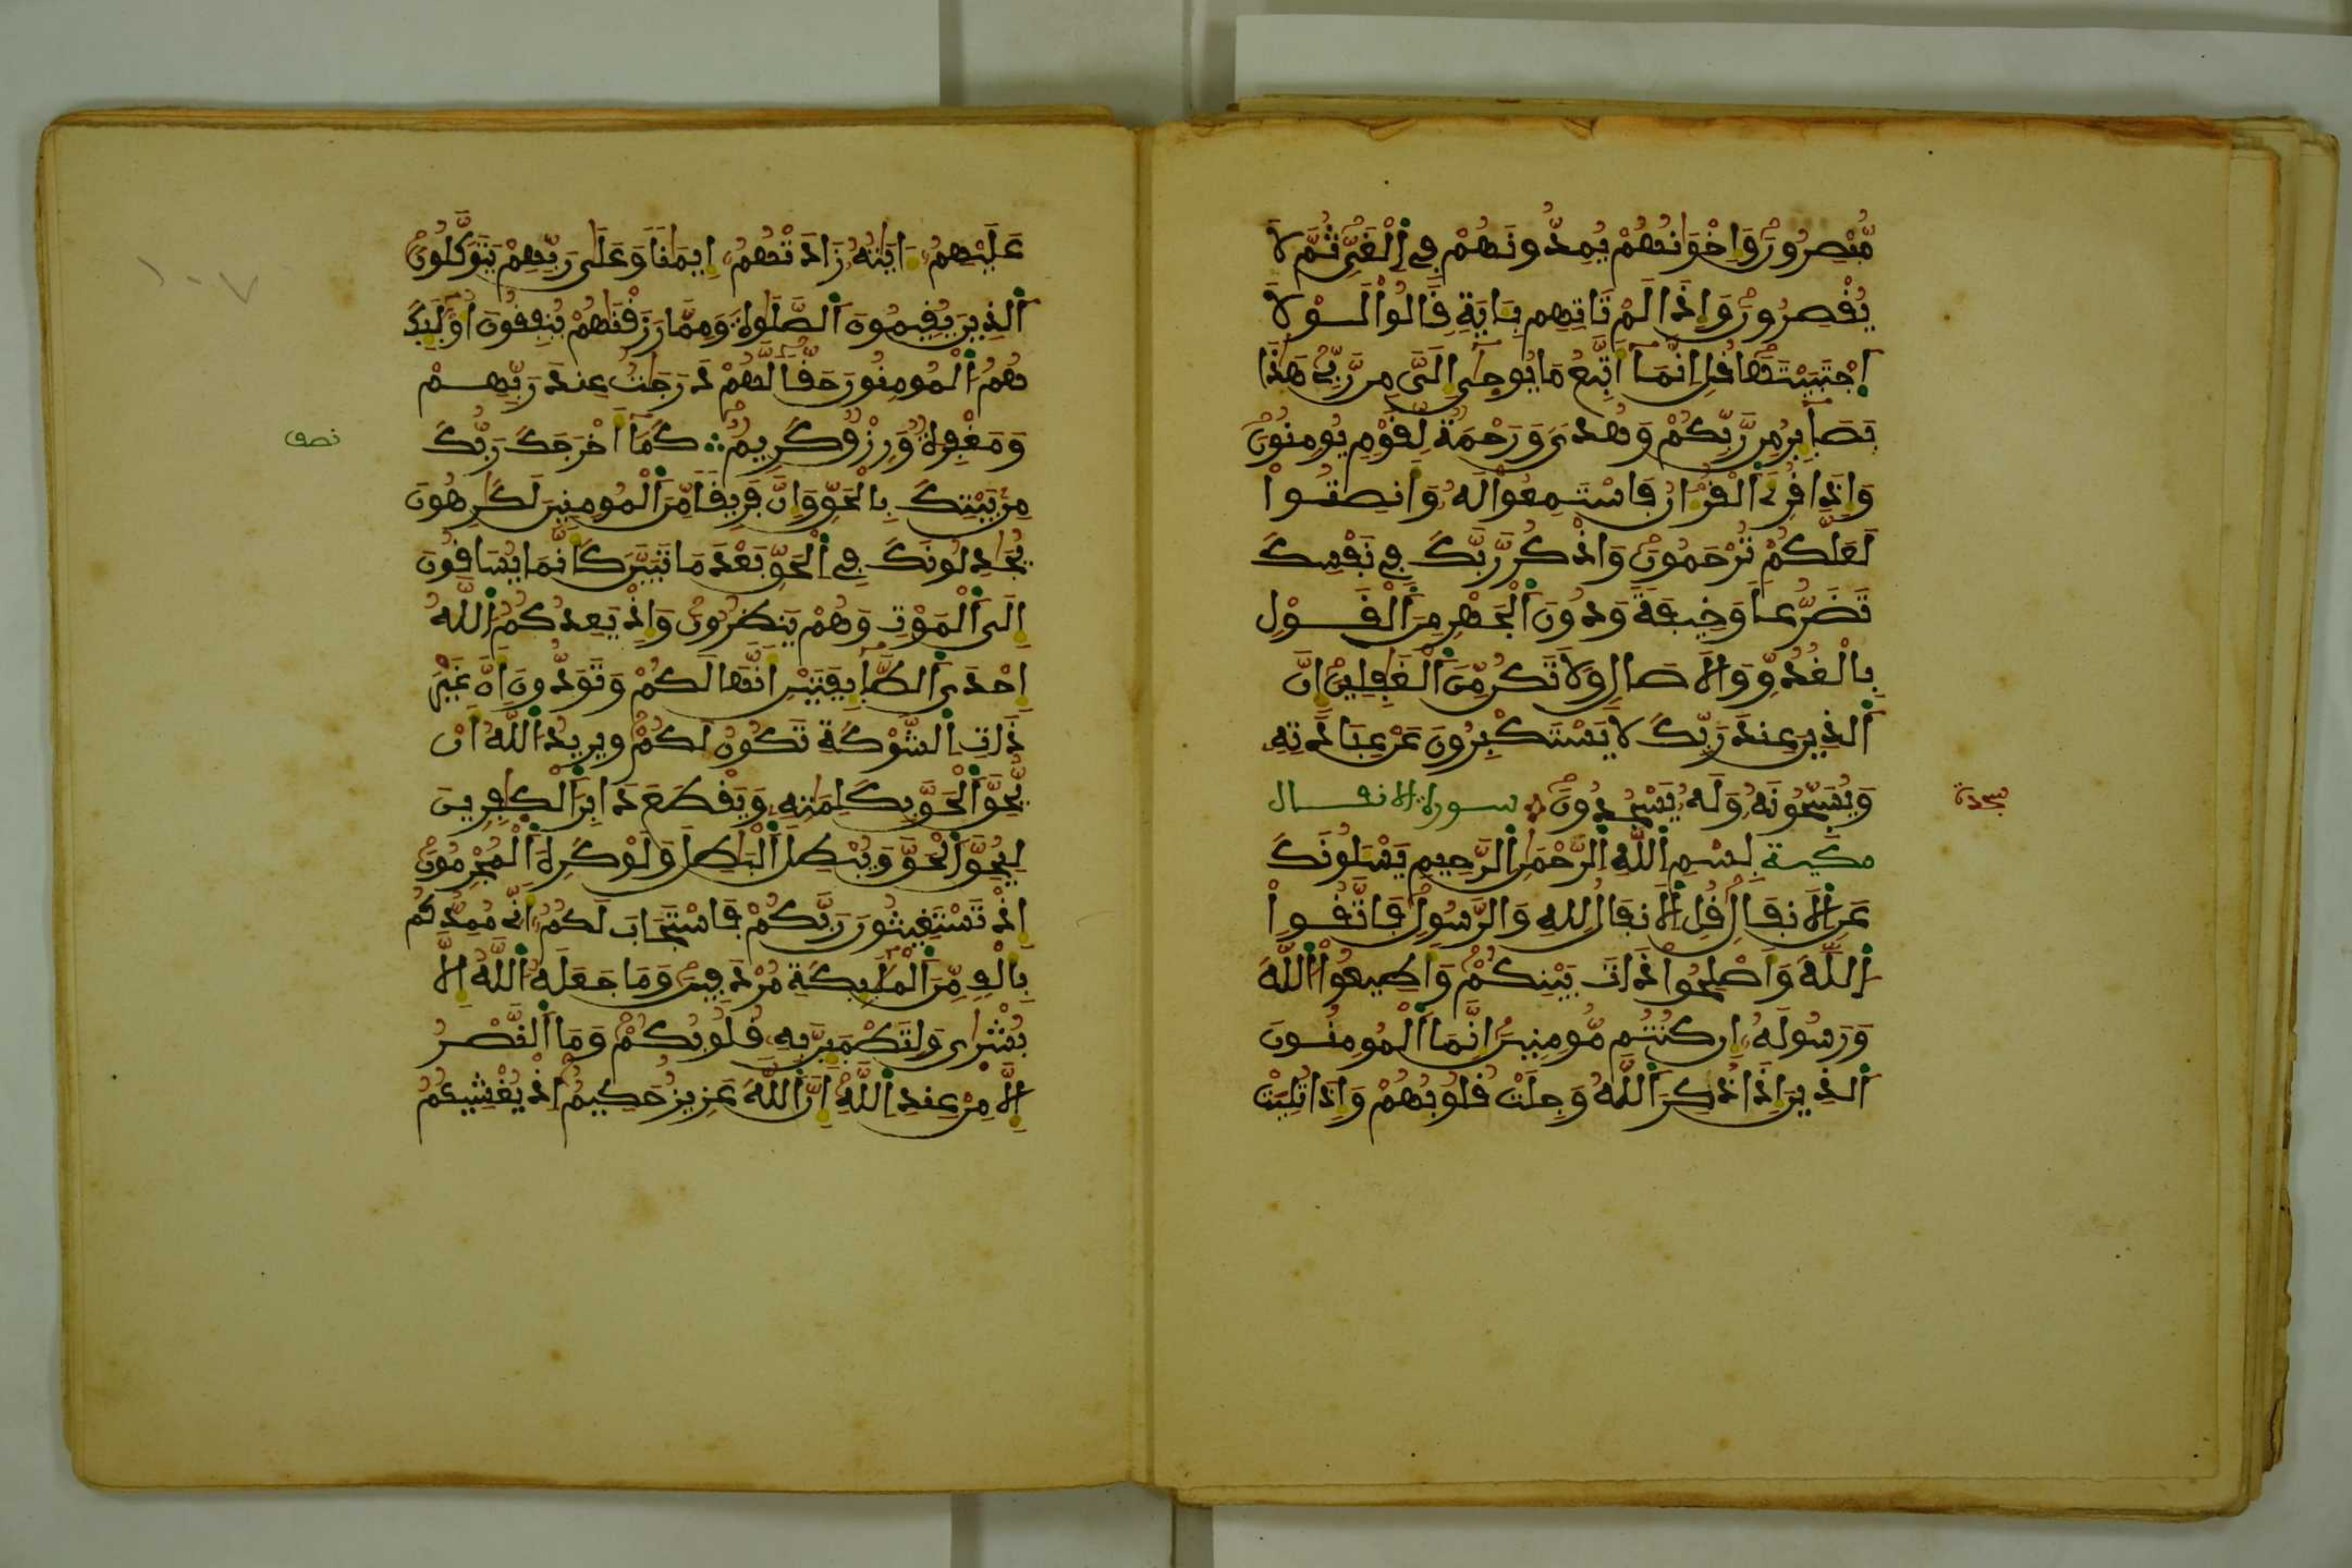 مُّبْصِرُونَ وَإِخْوَٰنُهُمْ يُمِدُّونَهُمْ فِي ٱلْغَيِّ ثُمَّ لَا
يُقْصِرُونَ وَإِذَا لَمْ تَاتِهِم بِـَٔايَةٍ قَالُواْ لَوْلَا
ٱجْتَبَيْتَهَا قُلِ انَّمَآ أَتَّبِعُ مَا يُوحَىٰٓ إِلَىَّ مِن رَّبِّي هَٰذَا
بَصَآئِرُ مِن رَّبِّكُمْ وَهُدىً وَرَحْمَةٌ لِّقَوْمٍ يُومِنُونَ
وَإِذَا قُرِئَ ٱلْقُرْءَانُ فَاسْتَمِعُواْ لَهُۥ وَأَنصِتُواْ
لَعَلَّكُمْ تُرْحَمُونَ وَاذْكُر رَّبَّكَ فِي نَفْسِكَ
تَضَرُّعاً وَخِيفَةً وَدُونَ ٱلْجَهْرِ مِنَ ٱلْقَوْلِ
بِالْغُدُوِّ وَالَاصَالِ وَلَا تَكُن مِّنَ ٱلْغَٰفِلِينَ إِنَّ
ٱلذِينَ عِندَ رَبِّكَ لَا يَسْتَكْبِرُونَ عَنْ عِبَادَتِهِۦ
وَيُسَبِّحُونَهُۥ وَلَهُۥ يَسْجُدُونَ سورة الانفال
سجدة
مكية بِسْمِ ٱللَّهِ ٱلرَّحْمَٰنِ ٱلرَّحِيمِ يَسْـَٔلُونَكَ
عَنِ ٱلَانفَالِ قُلِ ٱلَانفَالُ لِلهِ وَالرَّسُولِ فَاتَّقُواْ
ٱللَّهَ وَأَصْلِحُواْ ذَاتَ بَيْنِكُمْ وَأَطِيعُواْ ٱللَّهَ
وَرَسُولَهُۥ إِن كُنتُم مُّومِنِينَ إِنَّمَا ٱلْمُومِنُونَ
ٱلذِينَ إِذَا ذُكِرَ ٱللَّهُ وَجِلَتْ قُلُوبُهُمْ وَإِذَا تُلِيَتْ
١٠٧
عَلَيْهِمُۥٓ ءَايَٰتُهُۥ زَادَتْهُمُۥٓ إِيمَٰناً وَعَلَىٰ رَبِّهِمْ يَتَوَكَّلُونَ
ٱلذِينَ يُقِيمُونَ ٱلصَّلَوٰةَ وَمِمَّا رَزَقْنَٰهُمْ يُنفِقُونَ أُوْلَٰٓئِكَ
هُمُ ٱلْمُومِنُونَ حَقّاً لَّهُمْ دَرَجَٰتٌ عِندَ رَبِّهِمْ
وَمَغْفِرَةٌ وَرِزْقٌ كَرِيمٌ كَمَآ أَخْرَجَكَ رَبُّكَ
نصف
مِنۢ بَيْتِكَ بِالْحَقِّ وَإِنَّ فَرِيقاً مِّنَ ٱلْمُومِنِينَ لَكَٰرِهُونَ
يُجَٰدِلُونَكَ فِي ٱلْحَقِّ بَعْدَ مَا تَبَيَّنَ كَأَنَّمَا يُسَاقُونَ
إِلَى ٱلْمَوْتِ وَهُمْ يَنظُرُونَ وَإِذْ يَعِدُكُمُ ٱللَّهُ
إِحْدَى ٱلطَّآئِفَتَيْنِ أَنَّهَا لَكُمْ وَتَوَدُّونَ أَنَّ غَيْرَ
ذَاتِ ٱلشَّوْكَةِ تَكُونُ لَكُمْ وَيُرِيدُ ٱللَّهُ أَنْ
يُّحِقَّ ٱلْحَقَّ بِكَلِمَٰتِهِۦ وَيَقْطَعَ دَابِرَ ٱلْكَٰفِرِينَ
لِيُحِقَّ ٱلْحَقَّ وَيُبْطِلَ ٱلْبَٰطِلَ وَلَوْ كَرِهَ ٱلْمُجْرِمُونَ
إِذْ تَسْتَغِيثُونَ رَبَّكُمْ فَاسْتَجَابَ لَكُمُۥٓ أَنِّي مُمِدُّكُم
بِأَلْفٍ مِّنَ ٱلْمَلَٰٓئِكَةِ مُرْدَفِينَ وَمَا جَعَلَهُ ٱللَّهُ إِلَّا
بُشْرَىٰ وَلِتَطْمَئِنَّ بِهِۦ قُلُوبُكُمْ وَمَا ٱلنَّصْرُ
إِلَّا مِنْ عِندِ ٱللَّهِ إِنَّ ٱللَّهَ عَزِيزٌ حَكِيمٌ إِذْ يُغْشِيكُمُ